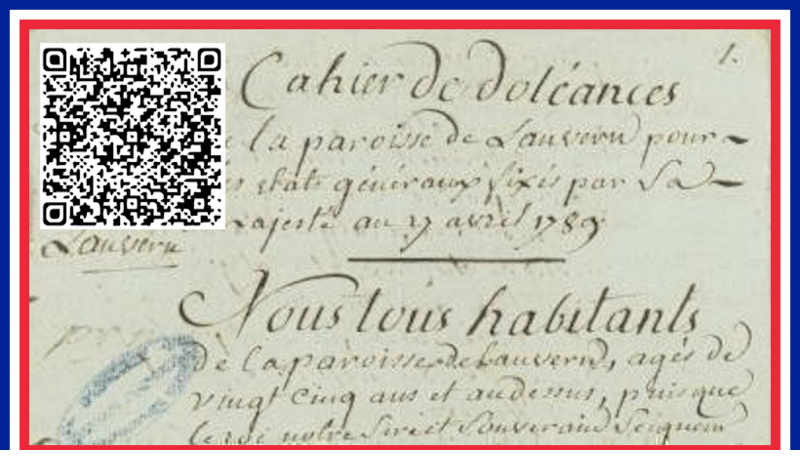 1.
Cahier de doléances
de la paroisse de Lauvern pour
les états généraux fixés par Sa
Majesté au 27 avril 1789
Lauvern
Nous tous habitants
de la paroisse de Lauvern, agés de
vingt cinq ans et audessus, puisque
le roi notre Sire et Souverain Seigneur